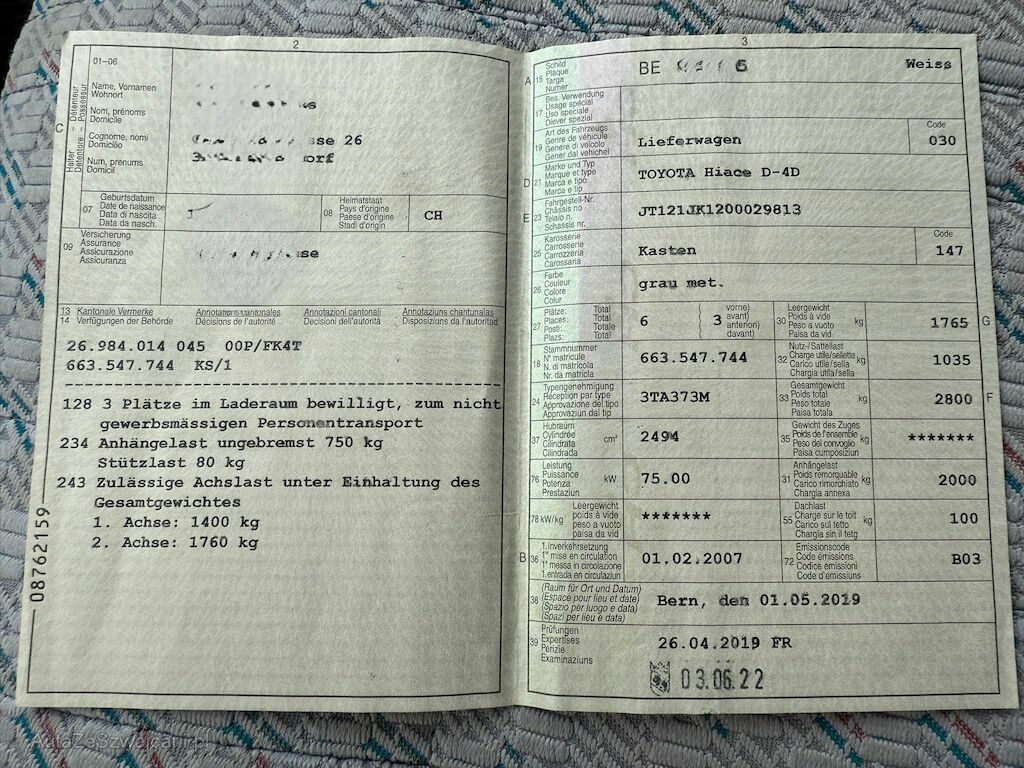 2
01-06
C
Halter – Détenteur
Detentore – Possessur
Name, Vornamen
Wohnort
Nom, prénoms
Domicile
Cognome, nomi
Domicilio
Num, prenums
Domicil
sse 26
orf
07
Geburtsdatum
Date de naissance
Data di nascita
Data da nasch.
08
Heimatstaat
Pays d'origine
Paese d'origine
Stadi d'origin
CH
09
Versicherung
Assurance
Assicurazione
Assicuranza
se
13 Kantonale Vermerke Annotations cantonales Annotazioni cantonali Annotaziuns chantunalas
14 Verfügungen der Behörde Décisions de l'autorité Decisioni dell'autorità Disposiziuns da l'autoritad
26.984.014 045 00P/FK4T
663.547.744 KS/1
128 3 Plätze im Laderaum bewilligt, zum nicht
gewerbsmässigen Personentransport
234 Anhängelast ungebremst 750 kg
Stützlast 80 kg
243 Zulässige Achslast unter Einhaltung des
Gesamtgewichtes
1. Achse: 1400 kg
2. Achse: 1760 kg
08762159
3
A 15
Schild
Plaque
Targa
Numer
BE 6 Weiss
17
Bes. Verwendung
Usage spécial
Uso speciale
Diever spezial
19
Art des Fahrzeugs
Genre de véhicule
Genere di veicolo
Gener dal vehichel
Lieferwagen
Code
030
D 21
Marke und Typ
Marque et type
Marca e tipo
Marca e tip
TOYOTA Hiace D-4D
E 23
Fahrgestell-Nr.
Châssis no
Telaio n.
Schassis nr.
JT121JK1200029813
25
Karosserie
Carrosserie
Carrozzeria
Carossaria
Kasten
Code
147
26
Farbe
Couleur
Colore
Colur
grau met.
27
Plätze: Total
Places: Total
Posti: Totale
Plazs: Total
6
3
vorne)
avant)
anteriori)
davant)
30
Leergewicht
Poids à vide
Peso a vuoto
Paisa da vid
kg
1765
G
18
Stammnummer
N° matricule
N. di matricola
Nr. da matricla
663.547.744
32
Nutz-/Sattellast
Charge utile/sellette
Carico utile/sella
Chargia utila/sella
kg
1035
24
Typengenehmigung
Réception par type
Approvazione del tipo
Approvaziun dal tip
3TA373M
33
Gesamtgewicht
Poids total
Peso totale
Paisa totala
kg
2800
F
37
Hubraum
Cylindrée
Cilindrata
Cilindrada
cm³
2494
35
Gewicht des Zuges
Poids de l'ensemble
Peso del convoglio
Paisa cumposiziun
kg
*******
76
Leistung
Puissance
Potenza
Prestaziun
kW
75.00
31
Anhängelast
Poids remorquable
Carico rimorchiato
Chargia annexa
kg
2000
78 kW/kg
Leergewicht
poids à vide
peso a vuoto
paisa da vid
*******
55
Dachlast
Charge sur le toit
Carico sul tetto
Chargia sin il tetg
kg
100
B 36
1.Inverkehrsetzung
1re mise en circulation
1a messa in circolazione
1.entrada en circulaziun
01.02.2007
72
Emissionscode
Code émissions
Codice emissioni
Code d'emissiuns
B03
38
(Raum für Ort und Datum)
(Espace pour lieu et date)
(Spazio per luogo e data)
(Spazi per lieu e data)
Bern, den 01.05.2019
39
Prüfungen
Expertises
Perizie
Examinaziuns
26.04.2019 FR
03.06.22
AutaZeSzwajcarii.pl